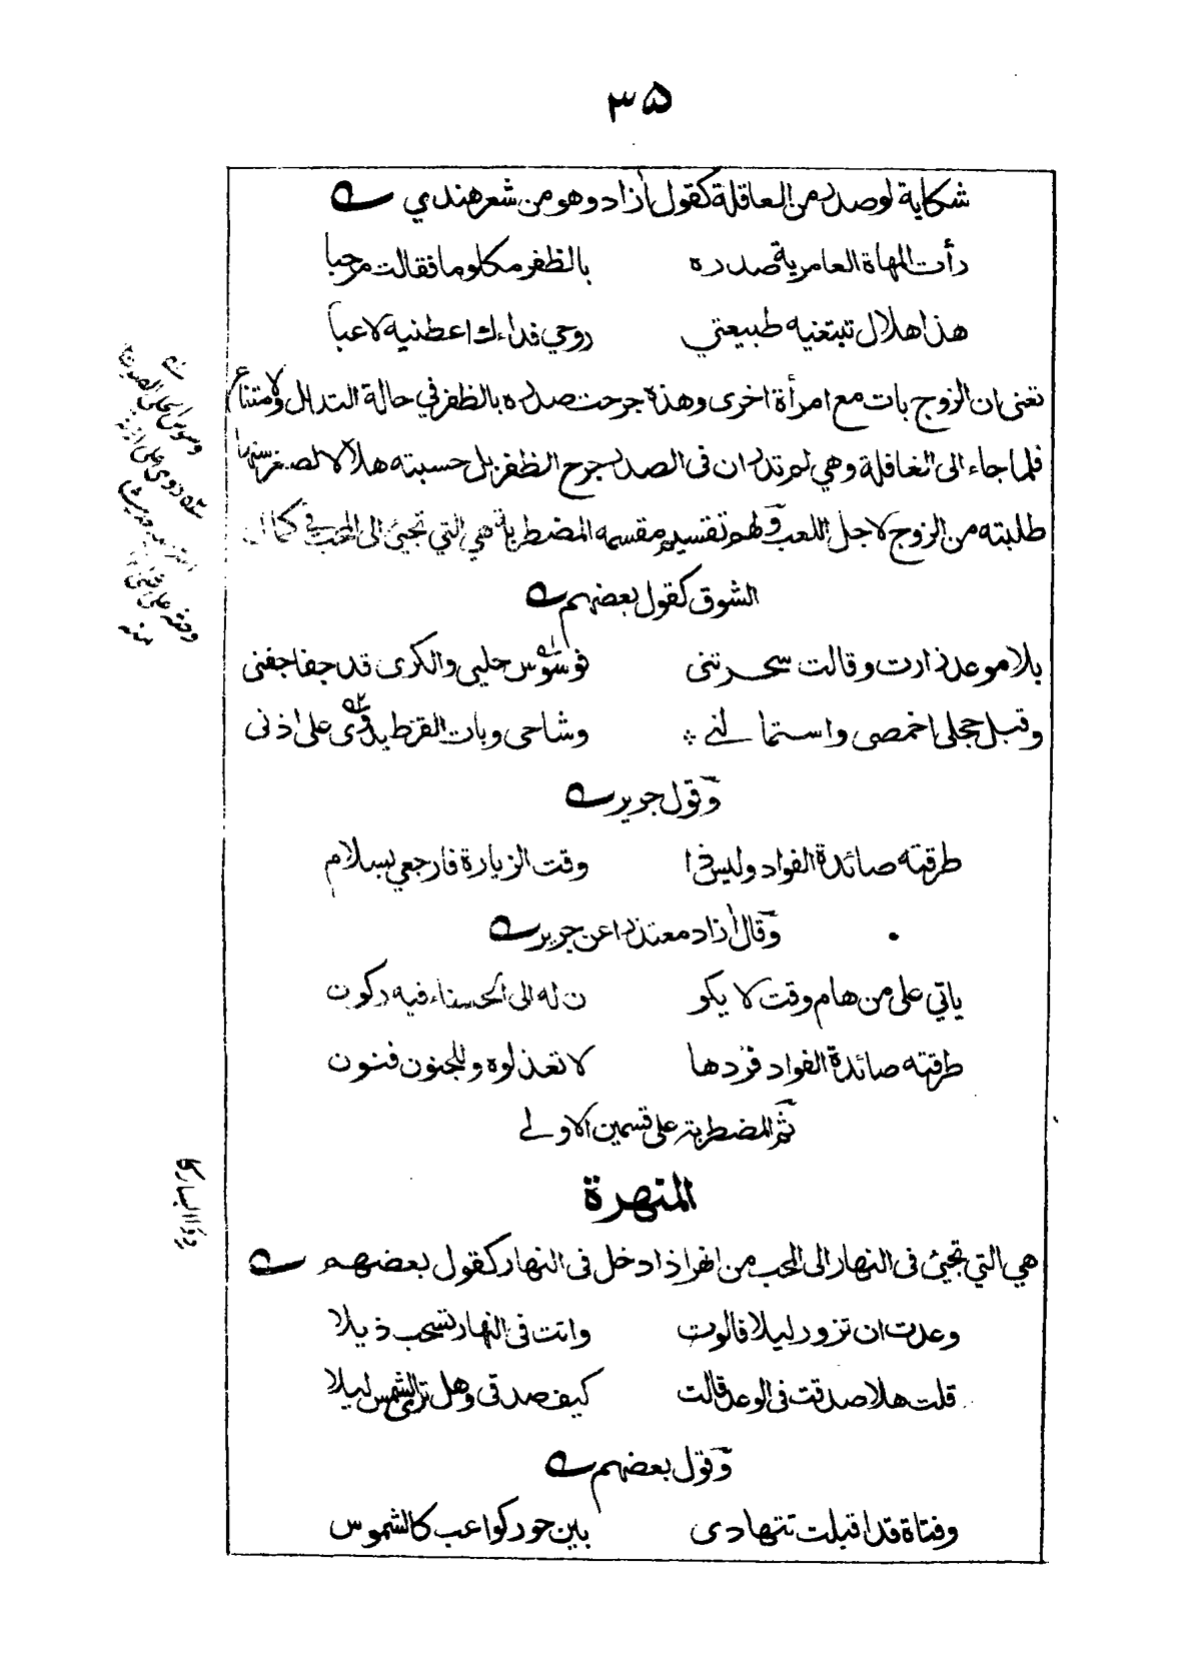 ٣٥
شكاية لوصدر من العاقلة كقول أزاد وهو من شعر هندي
رأت المهاة العامرية صدره بالظفر مكلوما فقالت مرحبا
هذا هلال تبتغيه طبيعتي روحي فداءك اعطنيه لاعبا
تعنى ان الزوج بات مع امرأة اخرى وهذه جرحت صدره بالظفر في حالة التدلل والامتناع
فلما جاء الى الغافلة وهي لم تدر ان فى الصدر جرح الظفر بل حسبته هلالا لصغر سنها
طلبته من الزوج لاجل اللعب ولهم تقسيم مقسمه المضطربة هي التي تجيئ الى المحب في كمال
الشوق كقول بعضهم
بلا موعد زارت وقالت سحرتنى فوسوس حليى والكرى قد جفا جفنى
وقبل حجلى اخمصى واستمالنے وشاحى وبات القرط يدوى على اذنى
وقول جرير
طرقته صائدة الفواد وليس ذا وقت الزيارة فارجعي بسلام
وقال أزاد معتذرا عن جرير
ياتي على من هام وقت لا يكو ن له الى الحسناء فيه ركون
طرقته صائدة الفواد فردها لا تعذلوه وللجنون فنون
ثم المضطربة على قسمين الاولے
المنهرة
هي التي تجيئ فى النهار الى المحب من انهر اذا دخل فى النهار كقول بعضهم
وعدت ان تزور ليلا فالوت واتت فى النهار تسحب ذيلا
قلت هلا صدقت فى الوعد قالت كيف صدقى وهل ترى الشمس ليلا
وقول بعضهم
وفتاة قد اقبلت تتهادى بين حور كواعب كالشموس